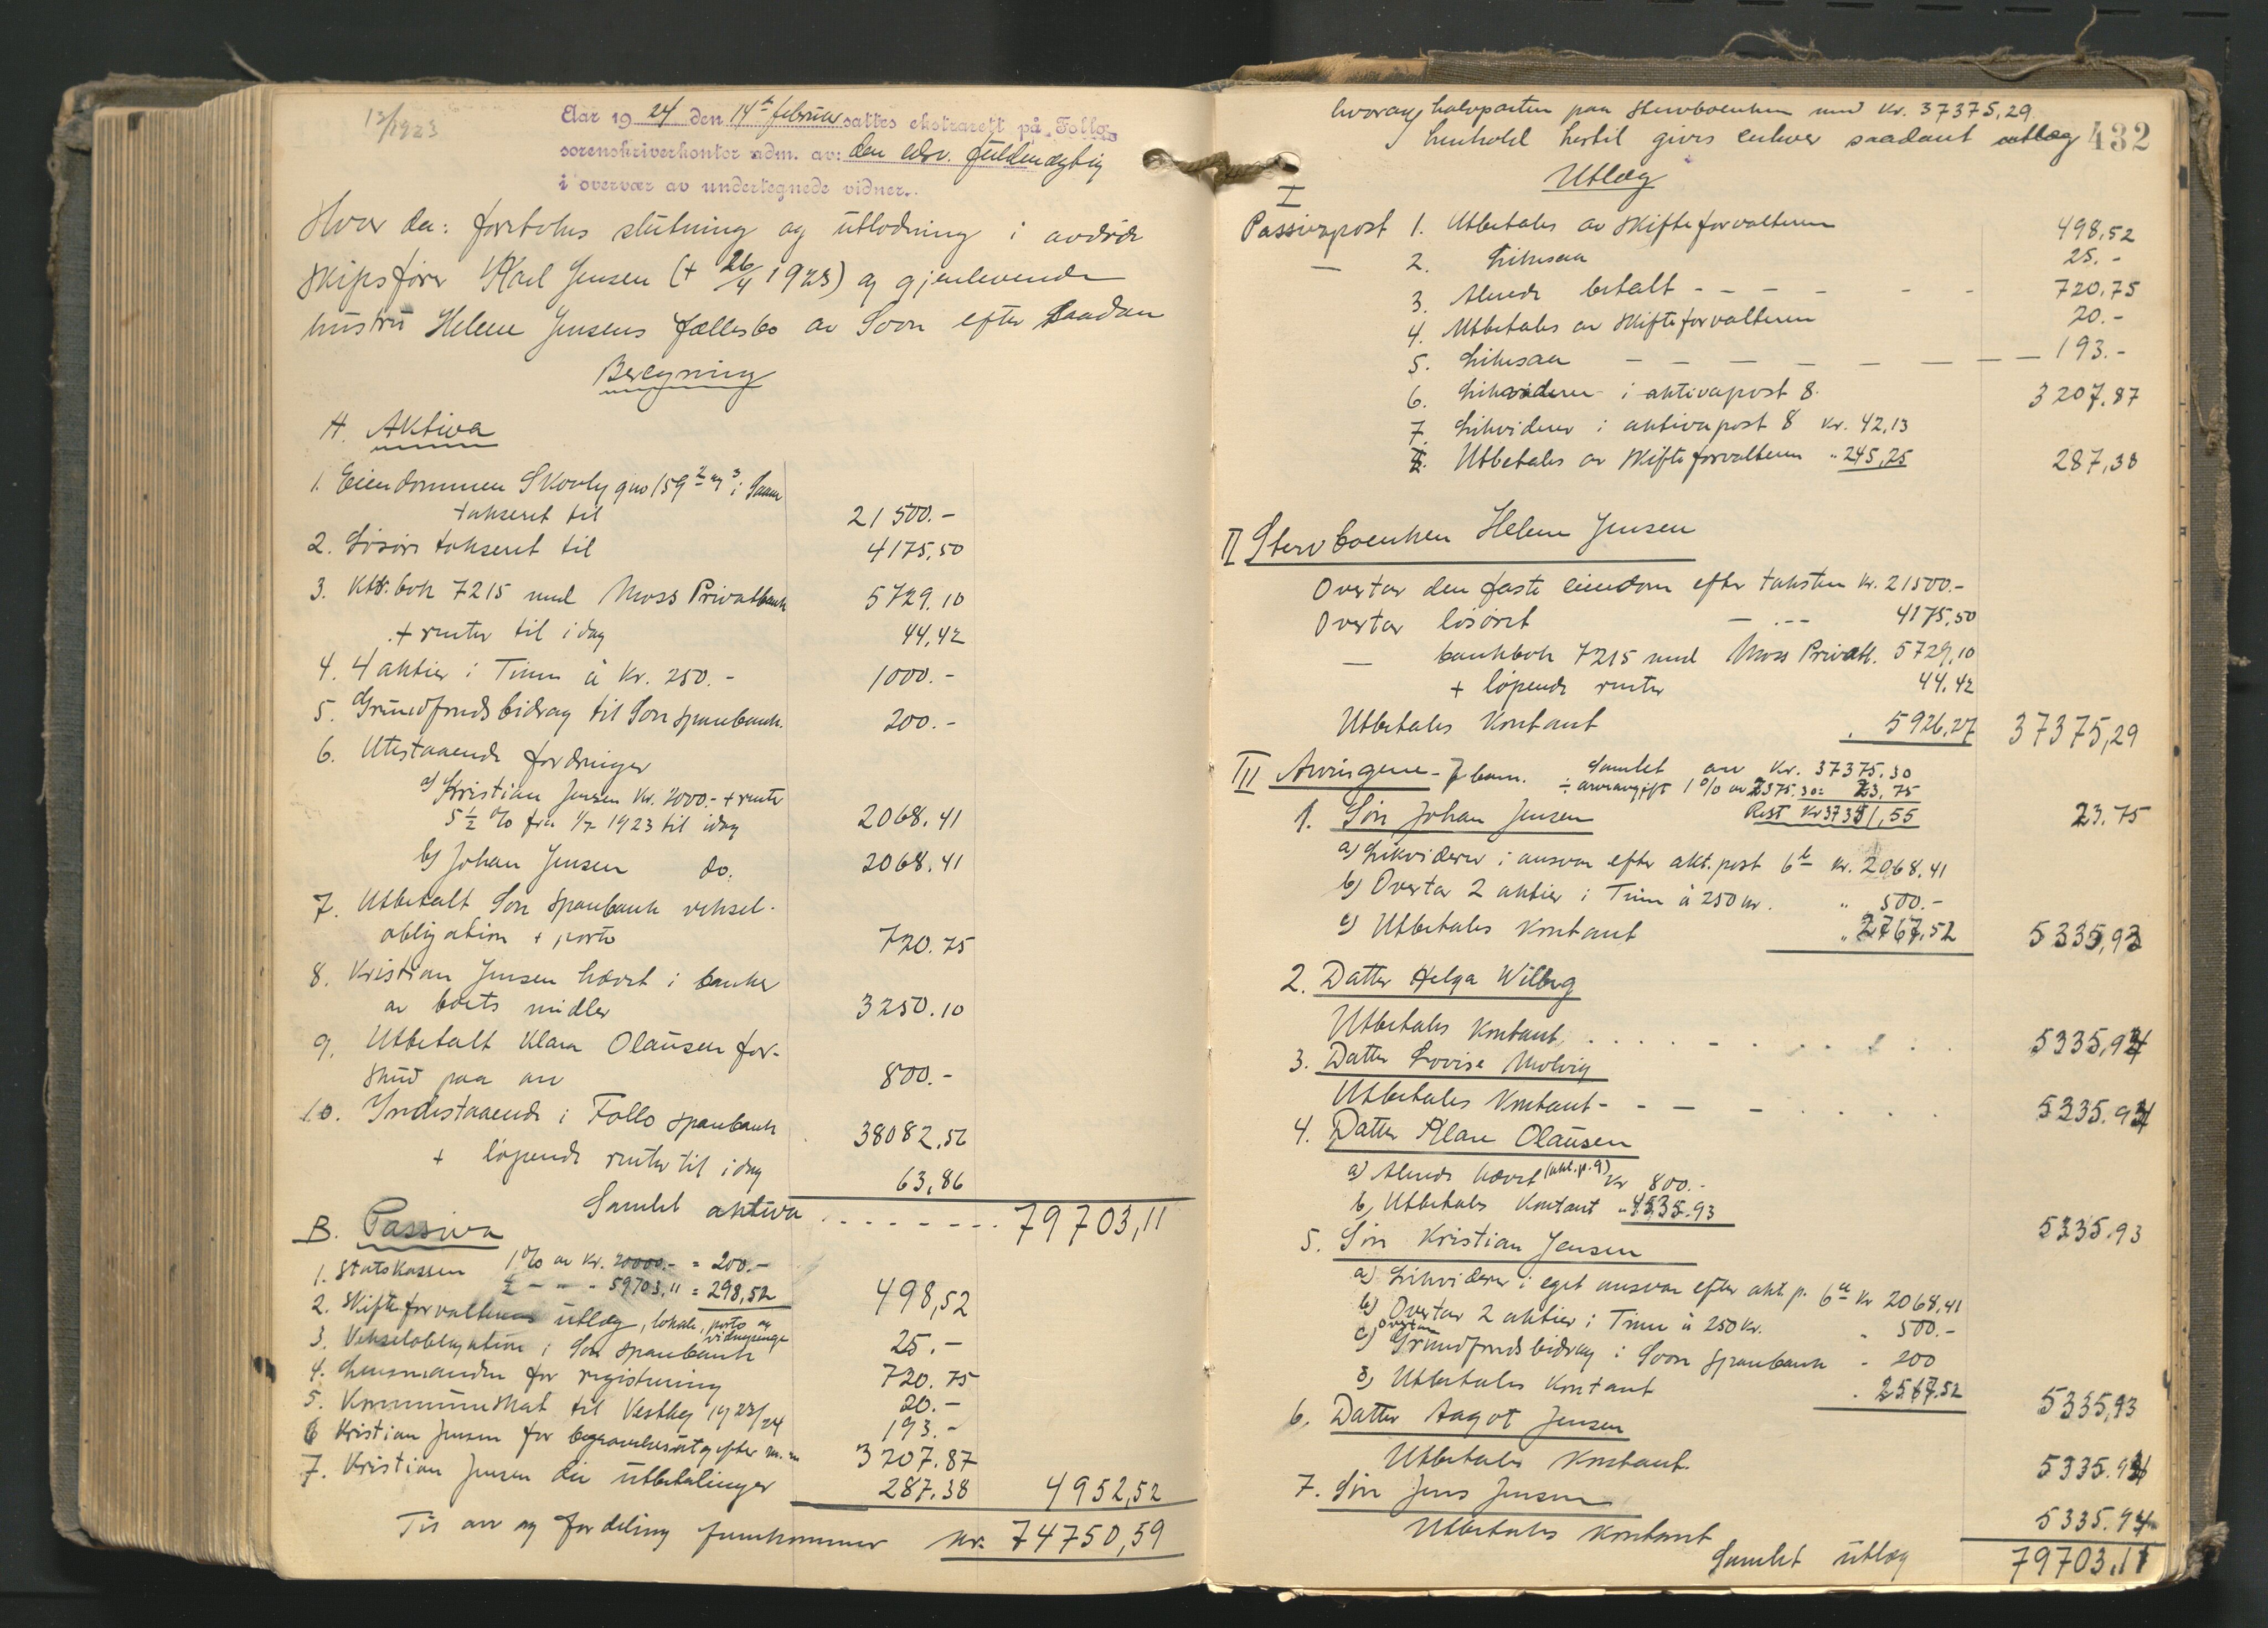 12/1923
Aar 1924 den 14de februar sattes ekstrarett på Follo
sorenskriverkontor adm. av: den edsv. fuldmægtig
i overvær av undertegnede vidner.
Hvor da: foretokes slutning og utlodning i avdøde
skipsfører Karl Jensen (+ 26/4 1923) og gjenlevende
hustru Helene Jensens fællesbo av Soon efter saadan
Beregning
A. Aktiva
1. Eiendommen Skovly gno 159 2 og 3 i Soon
takseret til 21500.-
2. Løsøre takseret til 4175,50
3. Ktr. bok 7215 med Moss Privatbank 5729.10
+ renter til idag 44,42
4. 4 aktier i Tinn à Kr. 250.- 1000.-
5. Grundfondsbidrag til Son sparebank. 200.-
6. Utestaaende fordringer
a) Kristian Jensen Kr. 2000.- + rente
5 1/2 % fra 1/7 1923 til idag 2068.41
b) Johan Jensen do. 2068.41
7. Utbetalt Son Sparebank veksel-
obligation + porto 720.75
8. Kristian Jensen hævet i banker
av boets midler 3250.10
9. Utbetalt Klara Olausen for-
skud paa arv 800.-
10. Indestaaende i Follo sparebank 38082,56
+ løpende renter til idag 63,86
Samlet aktiva . . . . . . . . 79703,11
B. Passiva
1. Statskassen 1% av Kr. 20000.- = 200.-
1/2 - " - 59703,11 = 298,52 498,52
2. Skifteforvalterens utlæg, lokale, porto og
vidnepenge 25.-
3. Vekselobligation i Son sparebank 720.75
4. Lensmanden for registrering 20.-
5. Kommuneskat til Vestby 1923/24 193.-
6 Kristian Jensen for begravelsesutgifter m.m 3207.87
7. Kristian Jensen div utbetalinger 287.38 4952,52
Til arv og fordeling fremkommer Kr. 74750,59
hvorav halvparten paa stervboenken med Kr. 37375,29.
I henhold hertil gives enhver saadant utlæg 432
Utlæg
I
Passivapost 1. Utbetales av skifteforvalteren 498,52
— 2. Likesaa 25.-
3. Alerede betalt - - - - - - 720,75
4. Utbetales av skifteforvalteren 20.-
5. Likesaa — — — — — — — 193.-
6. Likviderer i aktivapost 8. 3207,87
7. Likviderer i aktivapost 8 Kr. 42,13
Utbetales av skifteforvalteren " 245,25 287,38
II Stervboenken Helene Jensen
Overtar den faste eiendom efter taksten Kr. 21500.-
Overtar løsøret — . -- 4175,50
— bankbok 7215 med Moss Privatb. 5729,10
+ løpende renter 44.42
Utbetales kontant . 5926,27 37375,29
III Arvingene - 7 barn. Samlet arv Kr. 37375.30
÷ arveavgift 1% av 2375.30 = 23,75
Rest Kr 37351,55 23.75
1. Søn Johan Jensen
a) Likviderer i ansvar efter akt. post 6b Kr. 2068,41
b) Overtar 2 aktier i Tinn à 250 kr. " 500.-
c) Utbetales kontant " 2767,52 5335,93
2. Datter Helga Wilberg
Utbetales kontant . . . . . . . . . . 5335,94
3. Datter Lovise Molvig
Utbetales kontant - - — - . . . . 5335.94
4. Datter Klara Olausen
a) Alerede hævet (akt. p. 9) Kr 800.-
b) Utbetales kontant " 4535.93 5335.93
5. Søn Kristian Jensen
a) Likviderer i eget ansvar efter akt. p. 6a Kr 2068,41
b) Overtar 2 aktier i Tinn à 250 Kr. " 500.-
c) overtar Grundfondsbidrag i Soon Sparebank - 200
d) Utbetales kontant . 2567.52 5335,93
6. Datter Aagot Jensen
Utbetales kontant. 5335.94
7. Søn Jens Jensen
Utbetales kontant 5335.94
Samlet utlæg 79703.11